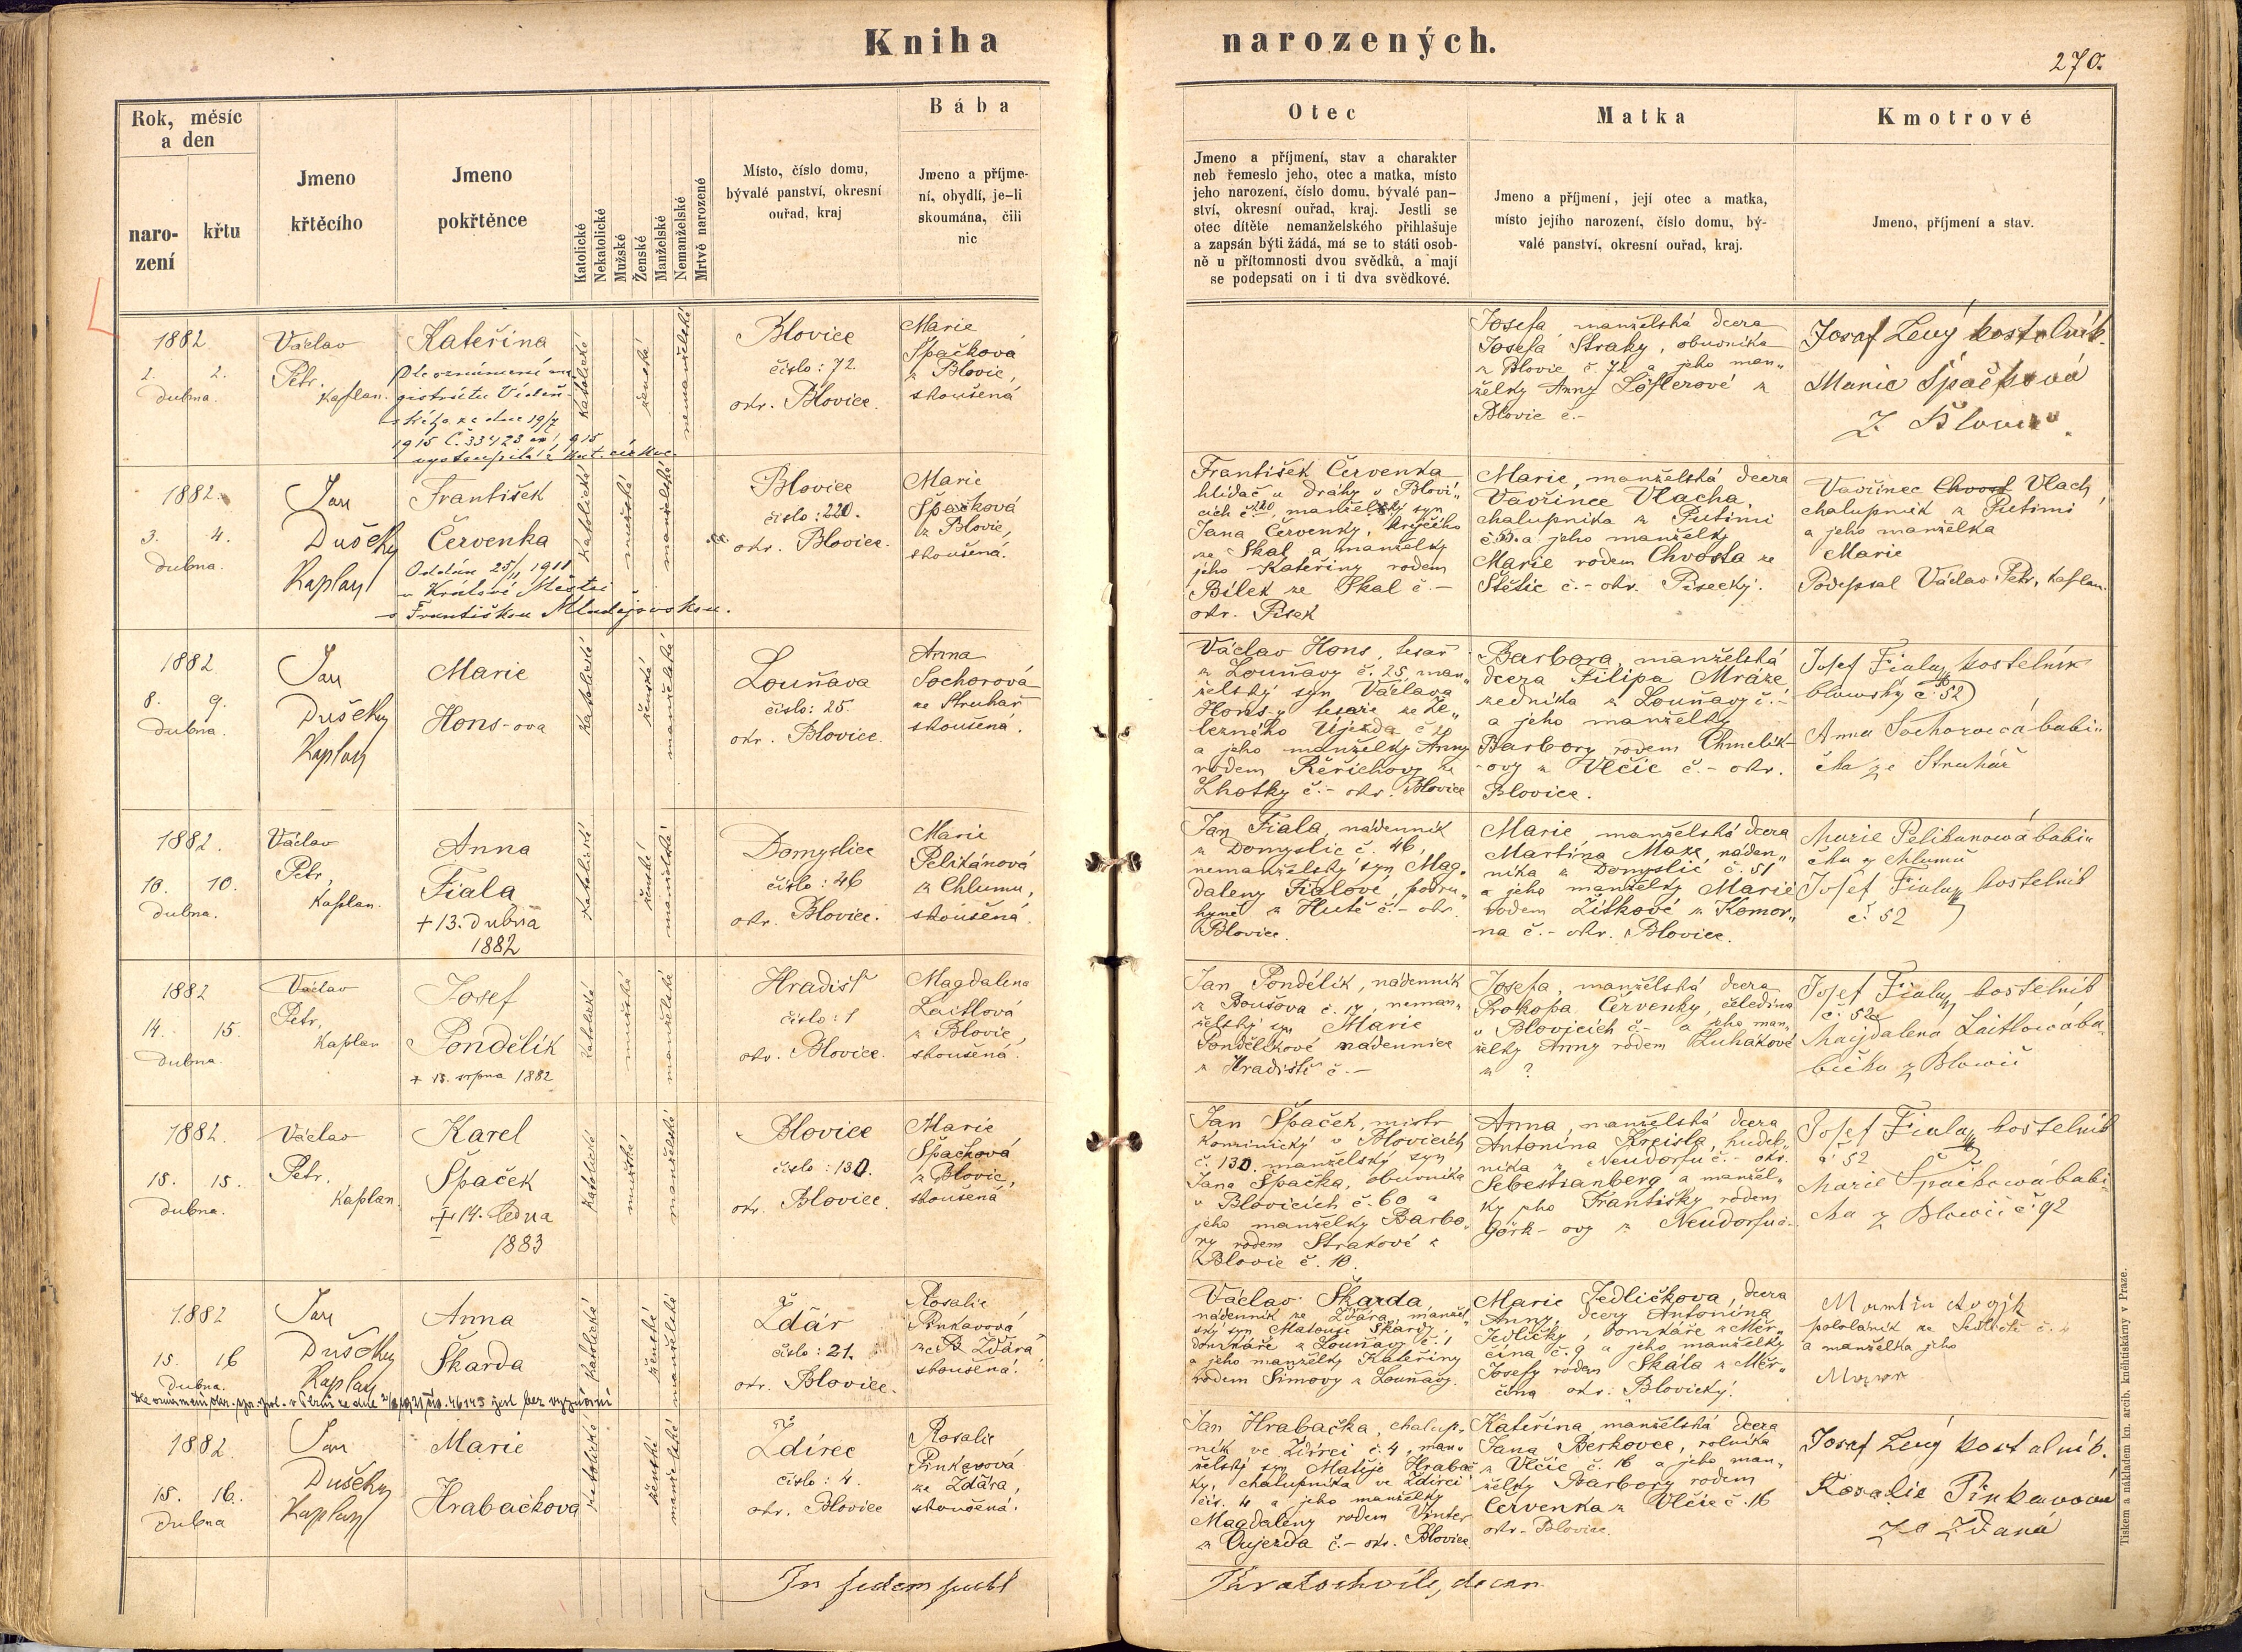 Kniha narozených.
270.
Rok, měsíc
a den
naro-
zení
křtu
Jmeno
křtěcího
Jmeno
pokřtěnce
Katolické
Nekatolické
Mužské
Ženské
Manželské
Nemanželské
Mrtvě narozené
Místo, číslo domu,
bývalé panství, okresní
ouřad, kraj
Bába
Jmeno a příjme-
ní, obydlí, je-li
skoumána, čili
nic
Otec
Jmeno a příjmení, stav a charakter
neb řemeslo jeho, otec a matka, místo
jeho narození, číslo domu, bývalé pan-
ství, okresní ouřad, kraj. Jestli se
otec dítěte nemanželského přihlašuje
a zapsán býti žádá, má se to státi osob-
ně u přítomnosti dvou svědků, a mají
se podepsati on i ti dva svědkové.
Matka
Jmeno a příjmení, její otec a matka,
místo jejího narození, číslo domu, bý-
valé panství, okresní ouřad, kraj.
Kmotrové
Jmeno, příjmení a stav.
1882
2. 2.
Dubna.
Václav
Petr,
Kaplan.
Kateřina
Dle oznámení ma
gistrátu Vídeň-
ského ze dne 19/7
1915 č. 33423 ex 1915
vystoupila z kat. církve
katolické
ženské
nemanželské
Blovice
číslo: 72.
okr. Blovice.
Marie
Špačková
z Blovic,
skoušená
Josefa, manželská dcera
Josefa Straky, obuvníka
z Blovic č. 72 a jeho man„
želky Anny Löflerové z
Blovic č.-
Josef Lený kostelník.
Marie Špačková
z Blovic.
1882.
3. 4.
dubna.
Jan
Dušek
Kaplan
František
Červenka
Oddán 25/11 1911
v Králové Městci
s Františkou Mladějovskou.
katolické
mužské
manželské
Blovice
číslo: 220.
okr. Blovice.
Marie
Špačková
z Blovic,
skoušená.
František Červenka
hlídač u dráhy v Blovi„
cích č. 220, manželský syn
Jana Červenky, krejčího
ze Skal a manželky
jeho Kateřiny rodem
Bílek ze Skal č.-
okr. Písek
Marie, manželská dcera
Vavřince Vlacha,
chalupníka z Putimi
č. 53. a jeho manželky
Marie rodem Chvosta ze
Štětic č.- okr. Písecký.
Vavřinec Chvost Vlach,
chalupník z Putimi
a jeho manželka
Marie
Podepsal Václav Petr, kaplan.
1882
8. 9.
dubna.
Jan
Dušek
Kaplan
Marie
Hons-ova
katolické
ženské
manželské
Louňava
číslo: 25.
okr. Blovice.
Anna
Sochorová
ze Struhař
skoušená.
Václav Hons, tesař
z Louňavy č. 25, man„
želský syn Václava
Hons-a tesaře ze Že„
lezného Újezda č 21
a jeho manželky Anny
rodem Řeřichovy ze
Lhotky č.- okr. Blovice
Barbora, manželská
dcera Filipa Mráze
zedníka z Louňavy č.-
a jeho manželky
Barbory rodem Chmelík-
-ovy z Vlčic č.- okr.
Blovice.
Josef Fiala, kostelník
blowický č. 52
Anna Sochorová babi„
čka ze Struhař
1882.
10. 10.
dubna.
Václav
Petr,
Kaplan.
Anna
Fiala
+ 13. Dubna
1882
katolické
ženské
manželské
Domyslice
číslo: 46
okr. Blovice.
Marie
Pelikánová
z Chlumu,
skoušená.
Jan Fiala, nádenník
z Domyslic č. 46,
nemanželský syn Mag„
daleny Fialové, podru„
hyně z Hutě č.- okr.
Blovice.
Marie, manželská dcera
Martina Maxe, náden„
níka z Domyslic č. 51
a jeho manželky Marie
rodem Žitkové z Komor„
na č.- okr. Blovice.
Marie Pelikanová babi„
čka z Chlumu
Josef Fiala kostelník
č. 52
1882
14. 15.
dubna.
Václav
Petr,
Kaplan
Josef
Pondělík
+ 13. srpna 1882
katolické
mužské
manželské
Hradišť
číslo: 1
okr. Blovice.
Magdalena
Laitlová
z Blovic,
skoušená.
Jan Pondělík, nádenník
z Boušova č. 17, neman„
želský syn Marie
Pondělíkové nádennice
z Hradiště č.-
Josefa, manželská dcera
Prokopa Červenky, čeledína
v Blovicích č.- a jeho man„
želky Anny rodem Luhákové
z ?
Josef Fiala kostelník
č. 52
Magdalena Laitlowá ba„
bička z Blowic
1882.
15. 15.
dubna.
Václav
Petr,
Kaplan.
Karel
Špaček
+ 14. ledna
1883
katolické
mužské
manželské
Blovice
číslo: 130.
okr. Blovice.
Marie
Špačková
z Blovic,
skoušená
Jan Špaček, mistr
kominický v Blovicích
č. 130. manželský syn
Jana Špačka, obuvníka
v Blovicích č. 60 a
jeho manželky Barbo„
ry rodem Strakové z
Blovic č. 10.
Anna, manželská dcera
Antonína Kreisla, hudeb„
níka z Neudorfu č.- okr.
Sebestianberg a manžel„
ky jeho Františky rodem
Görk-ovy z Neudorfu č.-
Josef Fiala, kostelník
č. 52
Marie Špačkowá babi„
čka z Blowic č. 92
1882
15. 16
dubna.
Jan
Dušek
Kaplan
Anna
Škarda
katolické
ženské
manželské
Ždár
číslo: 21.
okr. Blovice.
Rosalie
Pinkavová
ze Zďára
skoušená.
Václav Škarda,
nádenník ze Ždára, manžel„
ský syn Matouše Škardy,
domkáře z Louňavy č. 1,
a jeho manželky Kateřiny
rodem Šimovy z Louňavy.
Marie Jedličkova, dcera
Anny, dcery Antonína
Jedličky, domkáře z Měr„
čína č. 9 a jeho manželky
Josefy rodem Skála z Měr„
čína okr. Blovický.
Martin
pololáník ze Sedliště č. 4
a manželka jeho
1882
15. 16.
Dubna
Jan
Dušek
Kaplan
Marie
Hrabačkova
katolické
ženské
manželské
Ždírec
číslo: 4.
okr. Blovice
Rosalie
Pinkavová
ze Ždára,
skoušená.
Jan Hrabačka, chalup„
ník ve Ždírci č. 4, man„
želský syn Matěje Hrabač
ky, chalupníka ve Ždírci
čís. 4 a jeho manželky
Magdaleny rodem Vinter
z Oujezda č.- okr. Blovice.
Kateřina manželská dcera
Jana Berkovce, rolníka
z Vlčic č. 16 a jeho man„
želky Barbory rodem
Červenka z Vlčic č. 16
okr. Blovice.
Josef Lený kostelník.
Rosalie Pinkavová
ze Ždárá
In fidem publ
Kratochvíle, decan
Tiskem a nákladem kn. arcib. knihtiskárny v Praze.